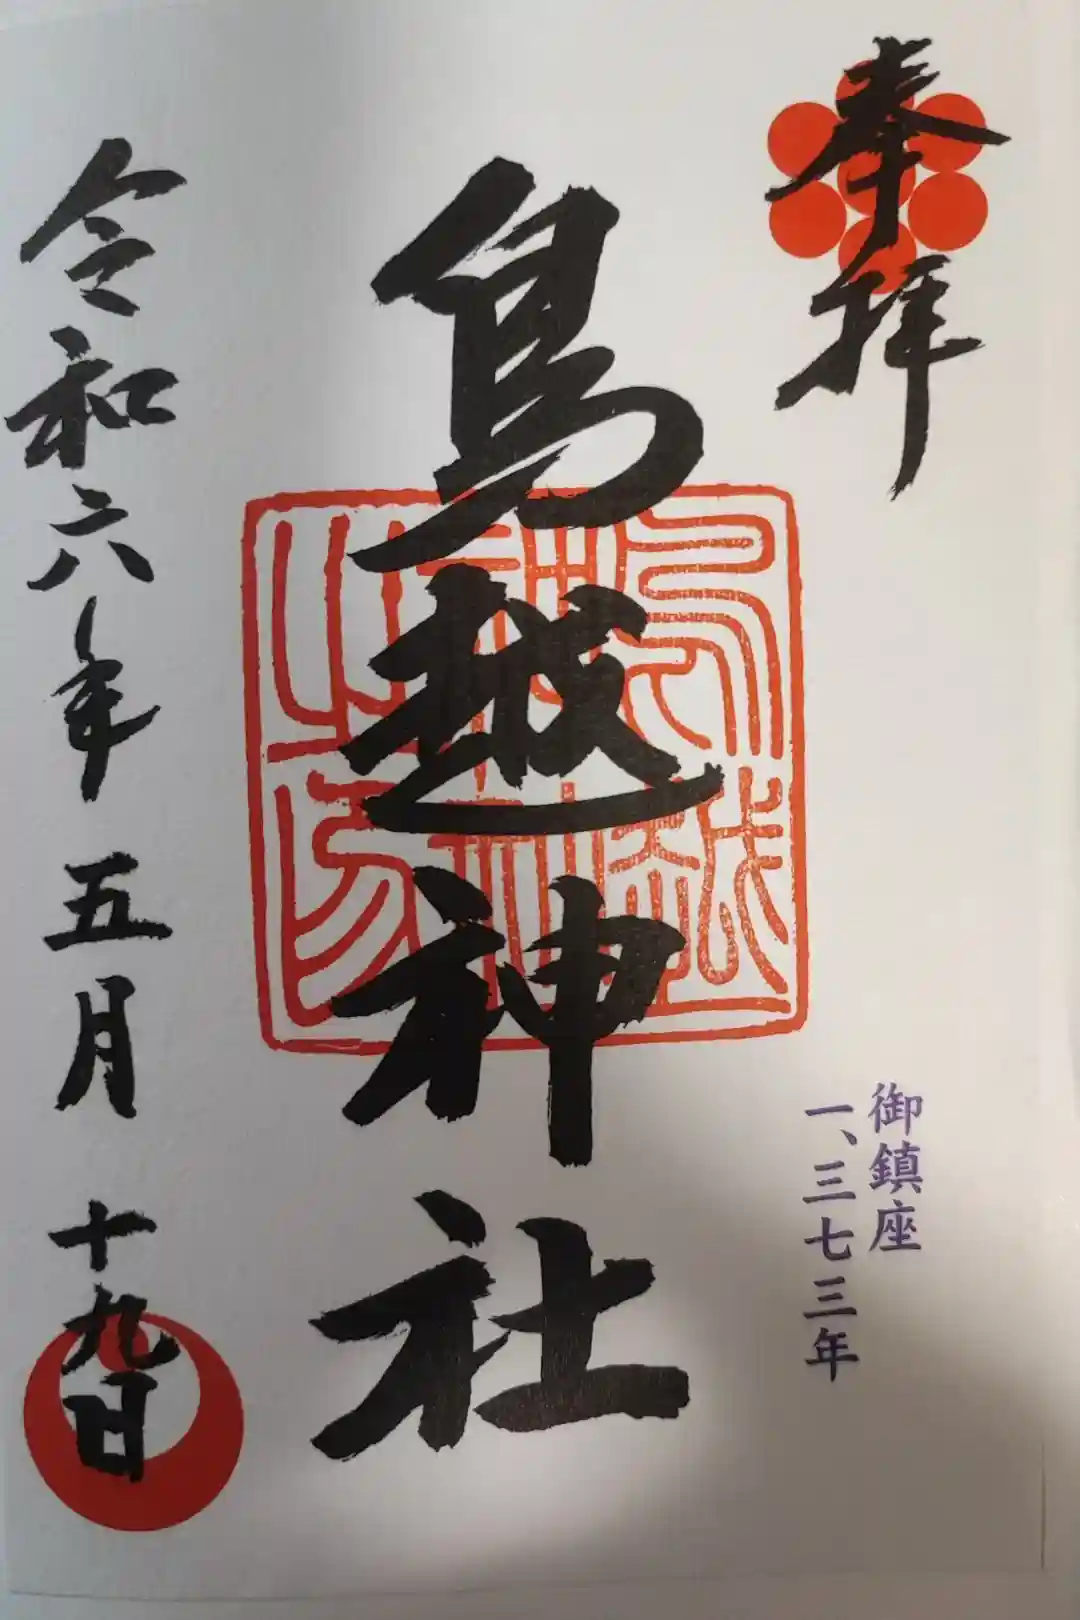 奉拝
御鎮座
一、三七三年
鳥越神社
令和六年五月十九日